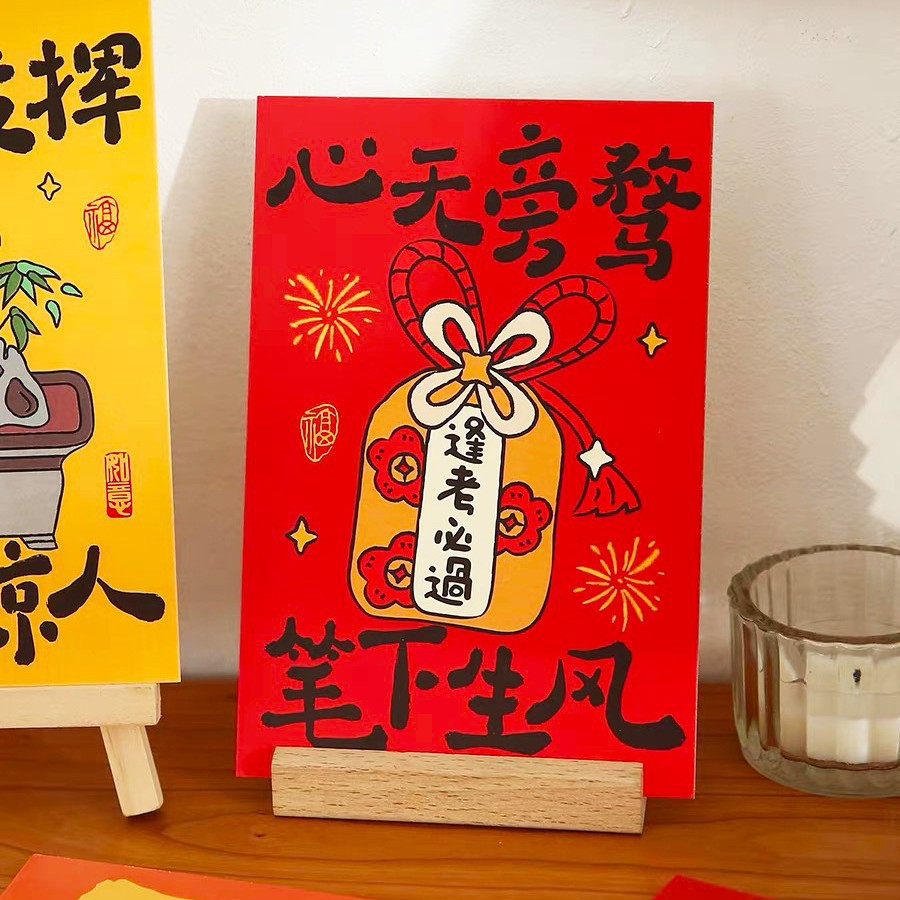 挥
福
如意
惊人
心无旁骛
福
逢考必過
笔下生风